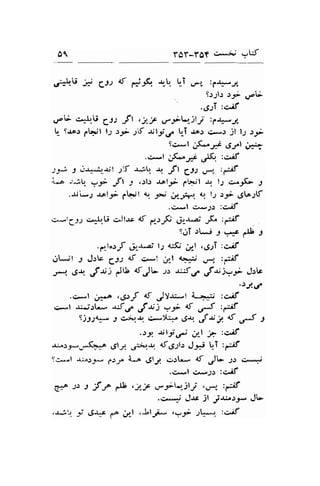 کتاب نخست ۳۵۴-۳۵۳ ۵۹
پرسیدم: پس آیا باید بگوئیم که روح نیز قابلیتی
خاص خود دارد؟
گفت: آری.
پرسیدم: ترازیماخوس عزیز، اگر روح قابلیت خاص
خود را از دست دهد آیا می‌تواند کار خود را انجام دهد؟ یا
چنین امری غیرممکن است؟
گفت: بکلی غیرممکن است.
گفتم: پس روح اگر بد باشد کار اندیشیدن و شور
و حکومت را بد انجام خواهد داد، و اگر خوب باشد همه
کارهای خود را به بهترین نحو به انجام خواهد رساند.
گفت: درست است.
گفتم: مگر تصدیق نکردیم که عدالت قابلیت روح‌است
و ظلم عیب و فساد آن؟
گفت: آری، این نکته را تصدیق کرده‌ایم.
گفتم: پس نتیجه این است که روح عادل و انسان
عادل خوب‌زندگی می‌کنند در حالی‌که ظالم زندگی بدی بسر
می‌برد.
گفت: نتیجهٔ استدلالی که کردی، همین است.
گفتم: کسی که خوب زندگی می‌کند سعادتمند است
و کسی که بزندگی بدی مبتلاست بدبخت و سیه‌روز؟
گفت: جز این نمی‌تواند بود.
گفتم: آیا قبول داری‌که بدبختی برای هیچکس‌سودمند
نیست در حالی که سعادت برای همهٔ مردم سودمند است؟
گفت: درست است.
گفتم: پس، ترازیماخوس عزیز، ظلم هرگز و در هیچ
حال سودمندتر از عدل نیست.
گفت: بسیار خوب، سقراط، این هم عیدی تو باشد،